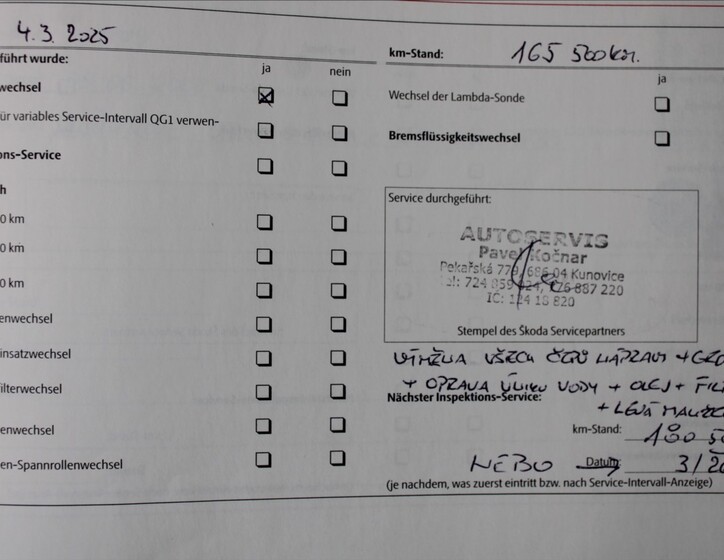 4.3.2025
km-Stand: 165 500 km.
führt wurde:
ja nein
ja
wechsel
Wechsel der Lambda-Sonde
ür variables Service-Intervall QG1 verwen-
Bremsflüssigkeitswechsel
ons-Service
h
Service durchgeführt:
0 km
AUTOSERVIS
Pavel Kočnar
0 km
Pekařská 779, 686 04 Kunovice
887 220
0 km
IČ: 124 18 820
enwechsel
Stempel des Škoda Servicepartners
insatzwechsel
VÝMĚNA VŠECH ČEPŮ NÁPRAVY +
+ OPRAVA ÚNIKU VODY + OLEJ +
ilterwechsel
Nächster Inspektions-Service:
+ LEVÁ
enwechsel
km-Stand: 180
en-Spannrollenwechsel
NEBO Datum: 3/20
(je nachdem, was zuerst eintritt bzw. nach Service-Intervall-Anzeige)